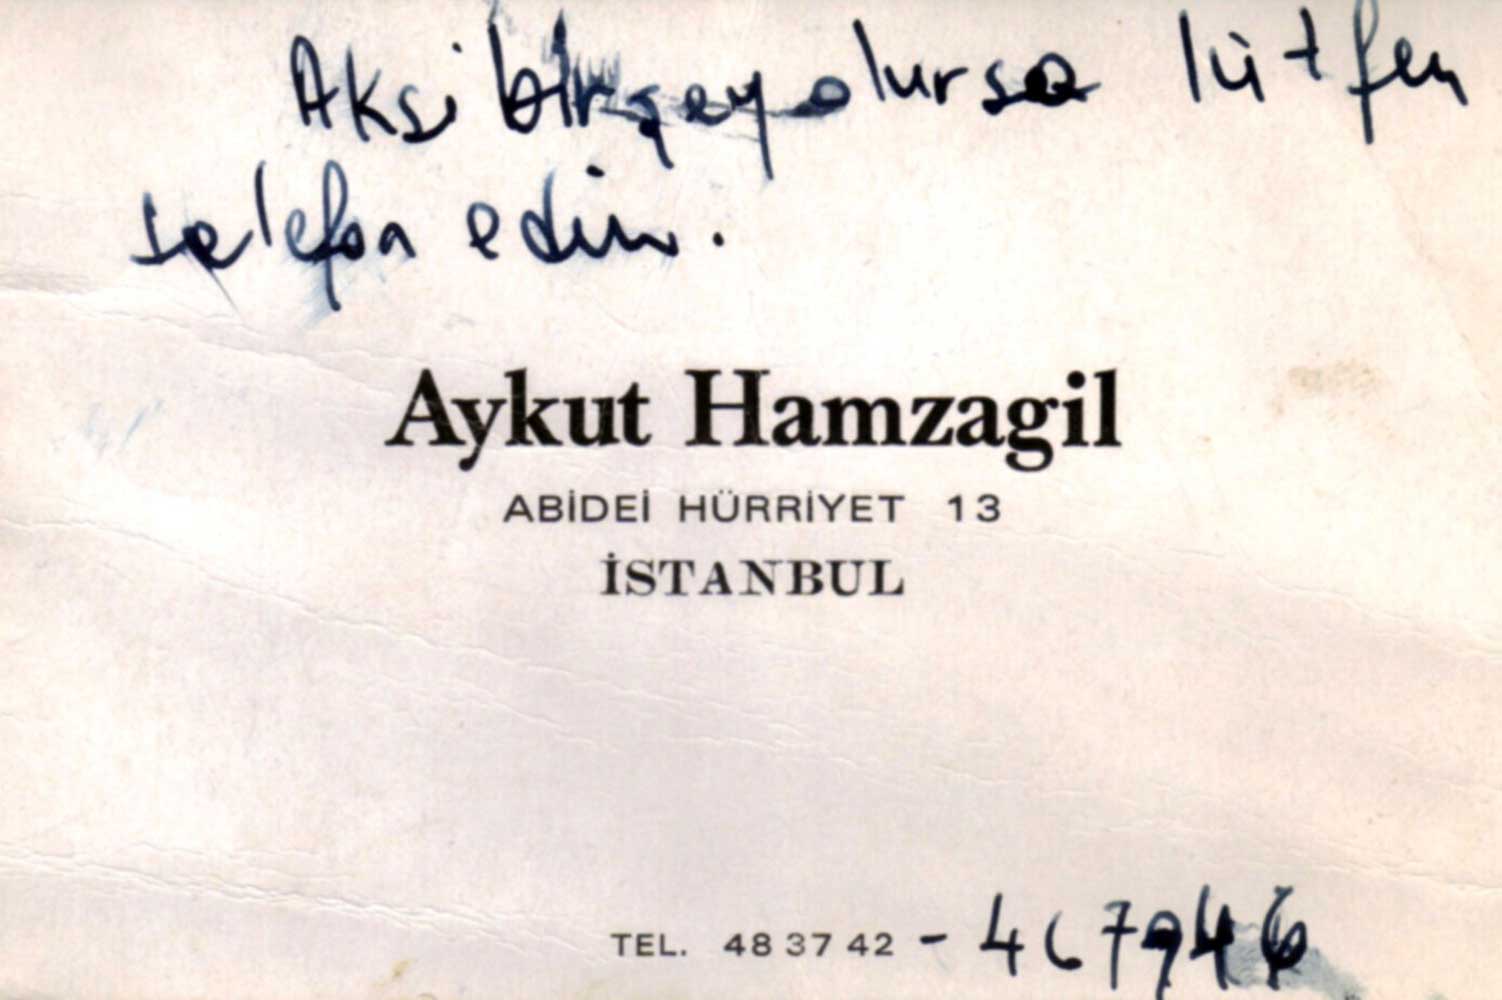 Aksi birşey olursa lütfen
telefon edin.
Aykut Hamzagil
ABİDEİ HÜRRİYET 13
İSTANBUL
TEL. 48 37 42 - 467946